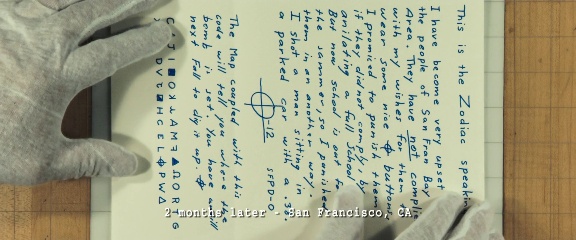 This is the Zodiac speakin
I have become very upset
the people of San Fran Bay
Area. They have not compli
with my wishes for them t
wear some nice ⌖ buttons
I promiced to punish them
if they did not comply, by
anilating a full School
But now school is out f
the sammer, so I punished
them in an another way.
I shot a man sitting in
a parked car with a .38.
⌖-12 SFPD-0
The Map coupled with this
code will tell you where the
bomb is set. You have antill
next Fall to dig it up. ⌖
2 months later - San Francisco, CA